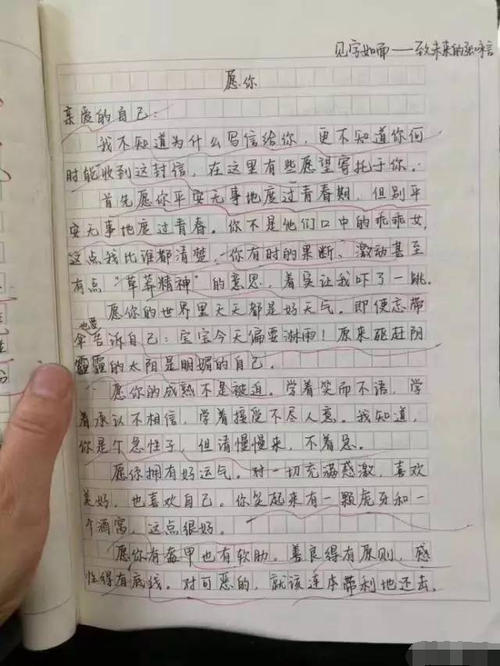 见字如面——致未来的张
愿你
亲爱的自己：
我不知道为什么写信给你，更不知道你何
时能收到这封信，在这里有些愿望寄托于你。
首先愿你平安无事地度过青春期，但别平
安无事地度过青春。你不是他们口中的乖乖女，
这点我比谁都清楚，你有时的果断、激动甚至
有点“草莽精神”的意思，着实让我吓了一跳。
愿你的世界里天天都是好天气。即便忘带
伞也要告诉自己：宝宝今天偏要淋雨！原来驱赶阴
霾的太阳是明媚的自己。
愿你的成熟不是被迫。学着笑而不语，学
着承认不相信，学着接受不尽人意。我知道，
你是个急性子，但请慢慢来，不着急。
愿你拥有好运气。对一切充满感激，喜欢
美好，也喜欢自己。你笑起来有一颗虎牙和一
个酒窝，这点很好。
愿你有盔甲也有软肋。善良得有原则，感
性得有底线。对可恶的，就该连本带利地还去。